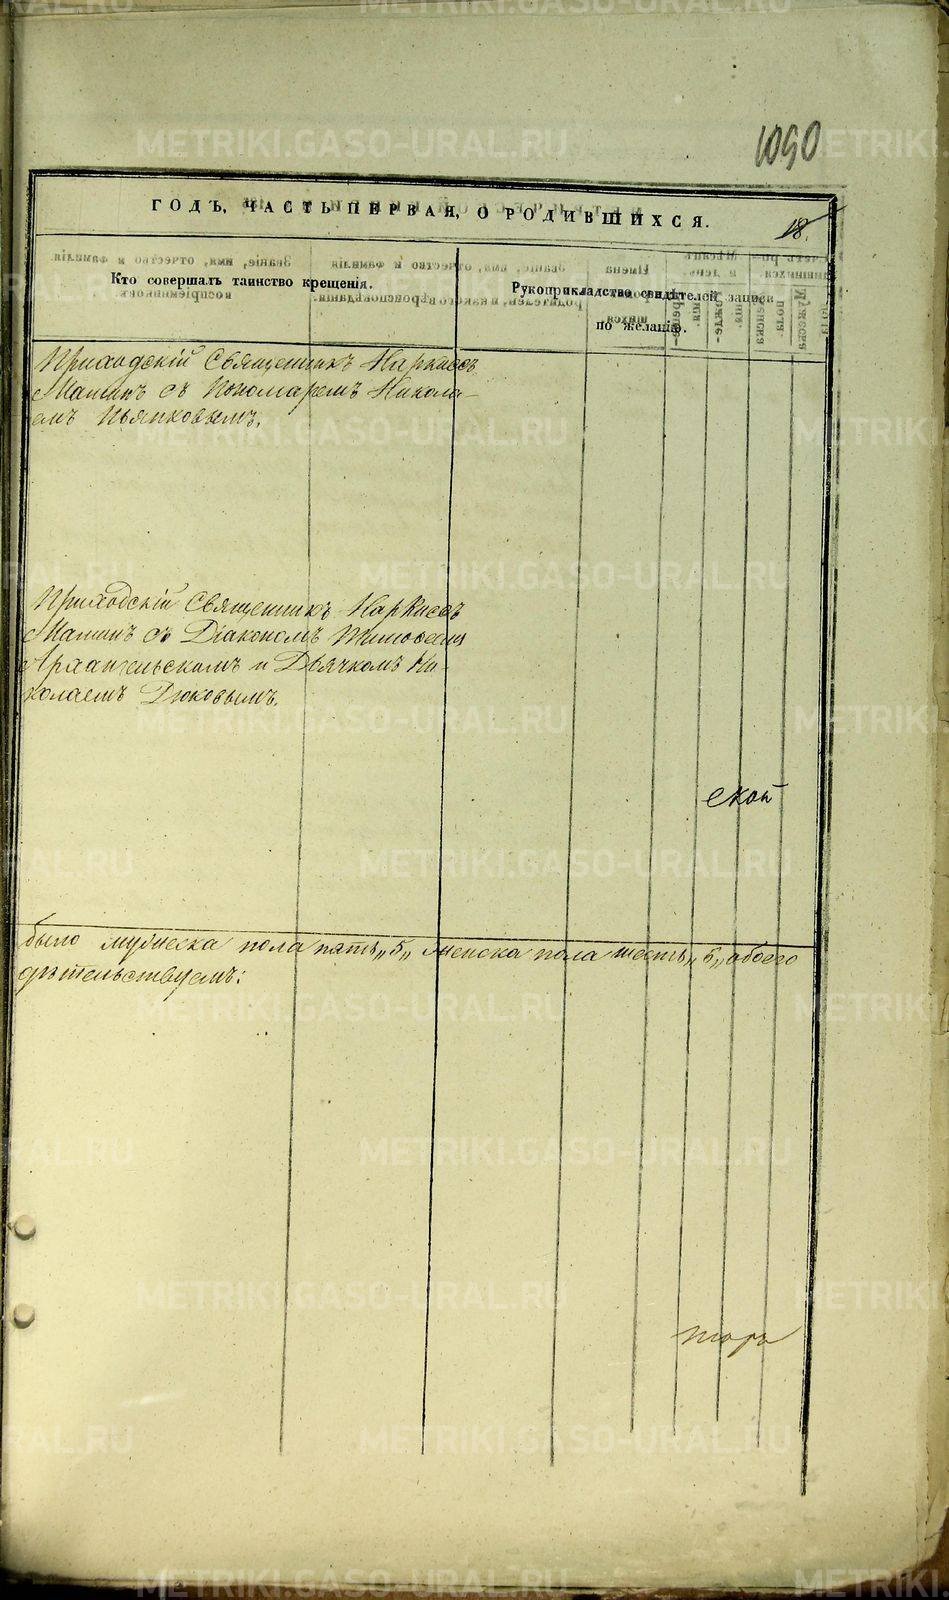 1090
ГОДЪ, ЧАСТЬ ПЕРВАЯ, О РОДИВШИХСЯ.
18
Кто совершалъ таинство крещенія.
Рукоприкладство свидѣтелей записи
по желанію.
Приходскій Священникъ Наркиссъ
Машинъ съ Пономаремъ Никола-
емъ Пьянковымъ.
Приходскій Священникъ Наркиссъ
Машинъ съ Діакономъ Тимоѳеемъ
Архангельскомъ и Дьячкомъ Ни-
колаемъ Дюковымъ.
ской
было мужеска пола пять „5„ женска пола шесть „6„ обоего
дѣтельствуемъ:
METRIKI.GASO-URAL.RU